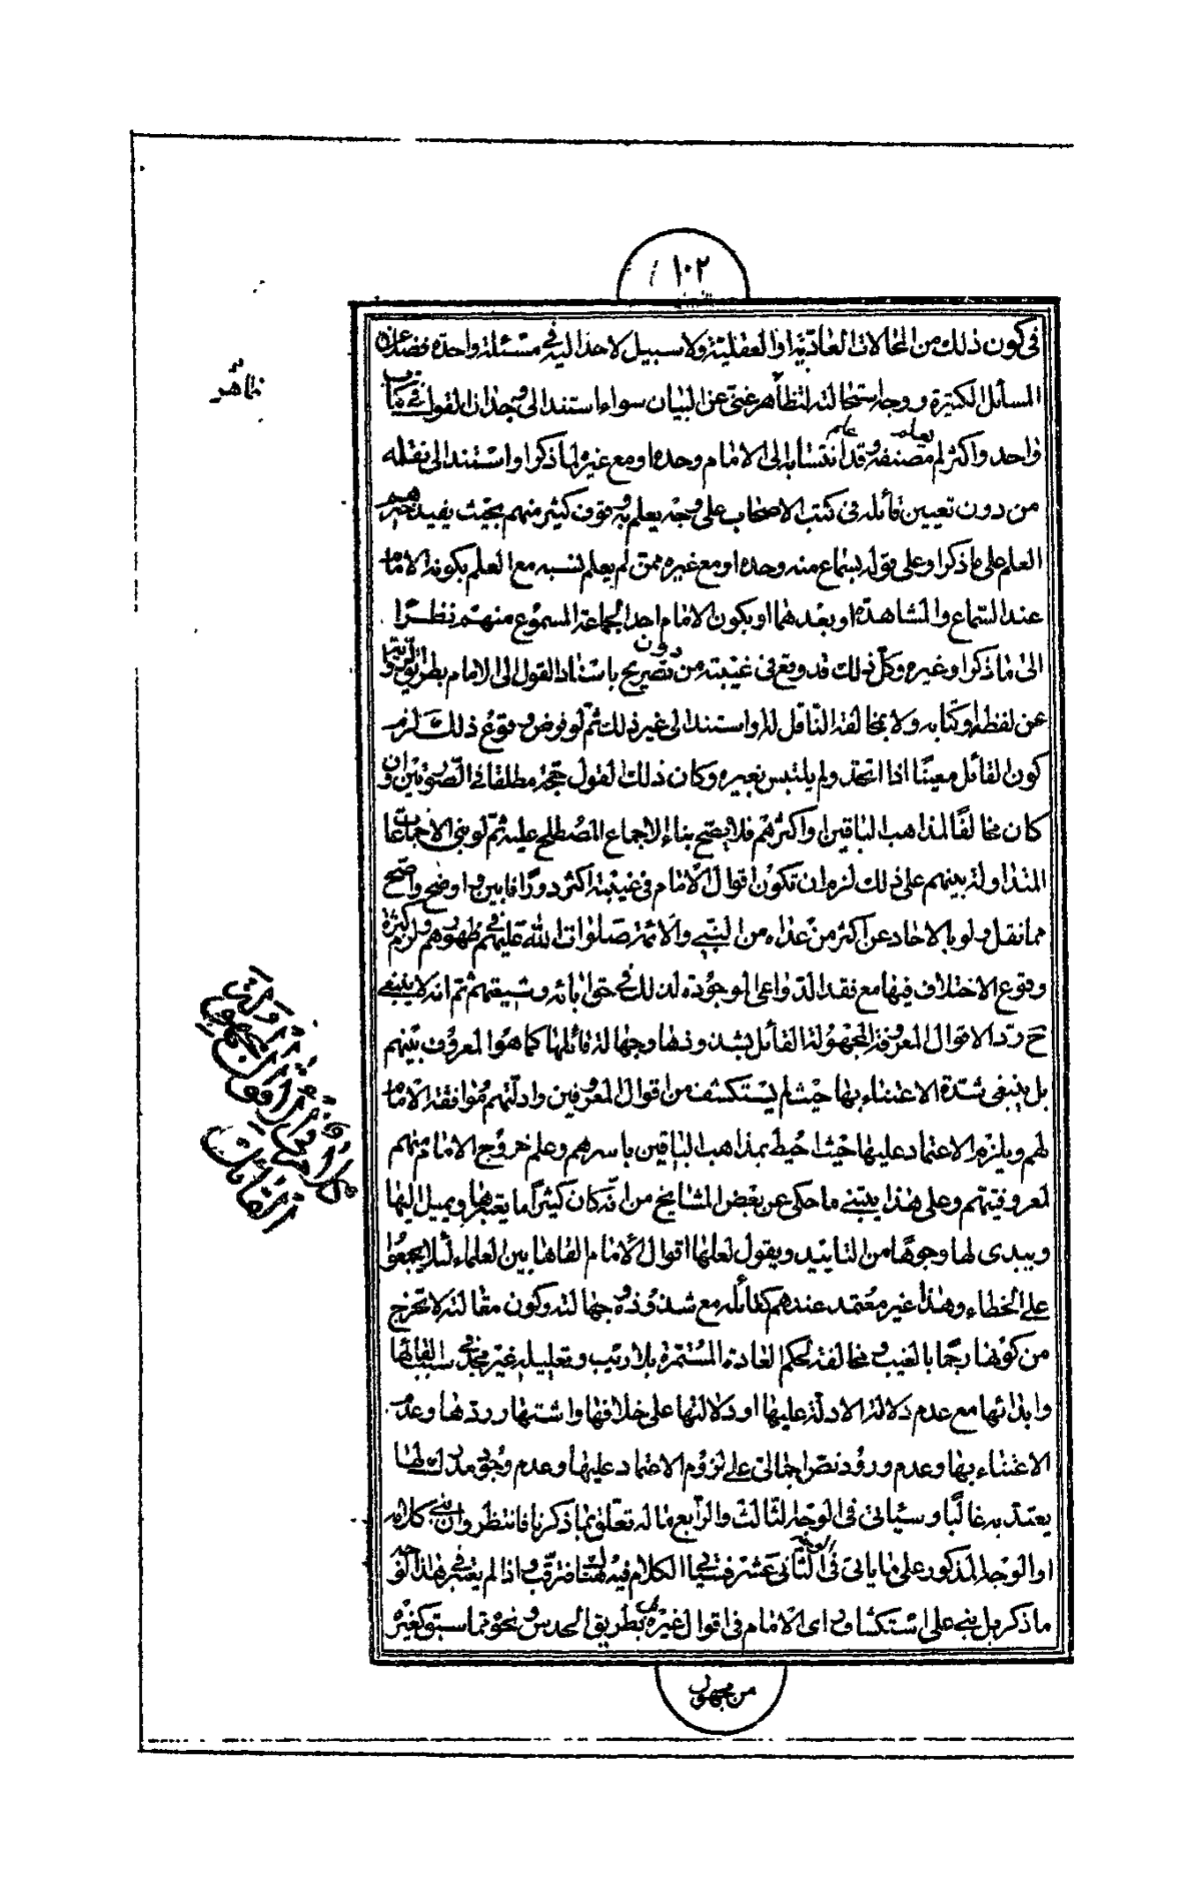 ١٠٢
في كون ذلك من المحالات العادية او العقلية ولا سبيل لاحد اليه في مسئلة واحدة فضلا عن
المسائل الكثيرة ووجه استحالته لتظاهر غني عن البيان سواء استند الى وجدان القول في كتاب
واحد واكثر لم يعلم مصنفه وقد علم انتسابه الى الامام وحده او مع غيره لما ذكر او استند الى نقله
من دون تعيين قائله في كتب الاصحاب على وجه يعلم به وقوف كثير منهم بحيث يفيد خبرهم
العلم على ما ذكر او على قوله بسماع منه وحده او مع غيره ممن لم يعلم نسبه مع العلم بكونه الامام
عند السماع والمشاهدة او بعدهما او بكون الامام احد الجماعة المسموع منهم نظرا
الى ما ذكر او غيره وكل ذلك قد وقع في غيبته من دون تصريح باسناد القول الى الامام بطريق
عن لفظه او كتابه ولا بمخالفة الناقل له او استند الى غير ذلك ثم لو فرض وقوع ذلك لزم
كون القائل معينا اذا اتحد ولم يلتبس بغيره وكان ذلك القول حجة مطلقا في الصورتين وان
كان مخالفا لمذاهب الباقين او اكثرهم فلا يصح بناء الاجماع المصطلح عليه ثم لو بنى الاجماعات
المتداولة بينهم على ذلك لزم ان تكون اقوال الامام في غيبته اكثر دورانا بينهم واوضح واصح
مما نقل ولو بالاحاد عن اكثر من عداه من النبي والائمة صلوات الله عليهم في ظهورهم ولزم كثرة
وقوع الاختلاف فيها مع فقد الدواعي الموجودة لذلك في حق ابائه وشيعتهم ثم انه لا ينبغي
ح رد الاقوال المعروفة المجهولة القائل بشذوذها وجهالة قائلها كما هو المعروف بينهم
بل ينبغي شدة الاعتناء بها حيث لم يستكشف من اقوال المعروفين وادلتهم موافقة الامام
لهم ويلزم الاعتماد عليها حيث احيط بمذاهب الباقين باسرهم وعلم خروج الامام منهم
لمعروفيتهم وعلى هذا يبتني ما حكى عن بعض المشايخ من انه كان كثيرا ما يعتبرها ويميل اليها
ويبدى لها وجوها من التاييد ويقول لعلها اقوال الامام القاها بين العلماء لئلا يجمعوا
على الخطاء وهذا غير معتمد عندهم كقائله مع شذوذه وجهالته وكون مقالته لا تخرج
من كونها رجما بالغيب ومخالفته لحكم العادة المستمرة بلا ريب وتعليله غير مجد في سبب القائها
وابدائها مع عدم دلالة الادلة عليها او دلالتها على خلافها واشتهار ردها وعدم
الاعتناء بها وعدم ورود نص اجمالي على لزوم الاعتماد عليها وعدم وجود مدرك لها
يعتد به غالبا وسياتي في الوجه الثالث والرابع ما له تعلق بما ذكرنا فانتظر وان بنى كلامه
او الوجه المذكور على ما ياتي في الوجه الثاني عشر فسيجئ الكلام فيه هناك فترقب واذا لم يعتبر في هذا
ما ذكر بل بنى على استكشاف راى الامام في اقوال غيره بطريق الحدس ونحوه مما سبق كغيره
من مجهول
ظاهر
القائلة